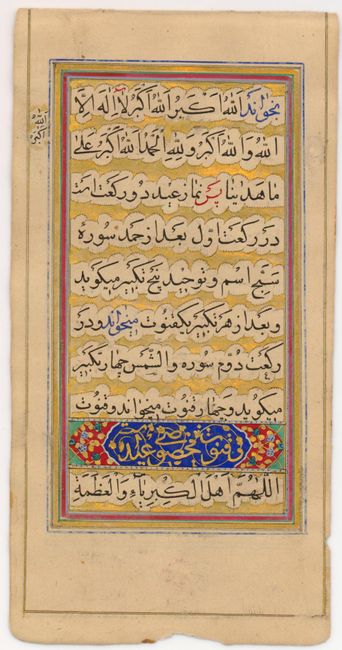 بخواند الله اکبر الله اکبر لا اله الا
الله والله اکبر ولله الحمد الله اکبر علی
ما هدینا پس نماز عید دو رکعتست
در رکعت اول بعد از حمد سوره
سبح اسم و توحید پنج تکبیر میکوید
و بعد از هر تکبیر یکقنوت میخواند و در
رکعت دوم سوره والشمس چهار تکبیر
میکوید و چهار قنوت میخواند و قنوت
اللهم اهل الکبریاء والعظمة
الله
اکبر